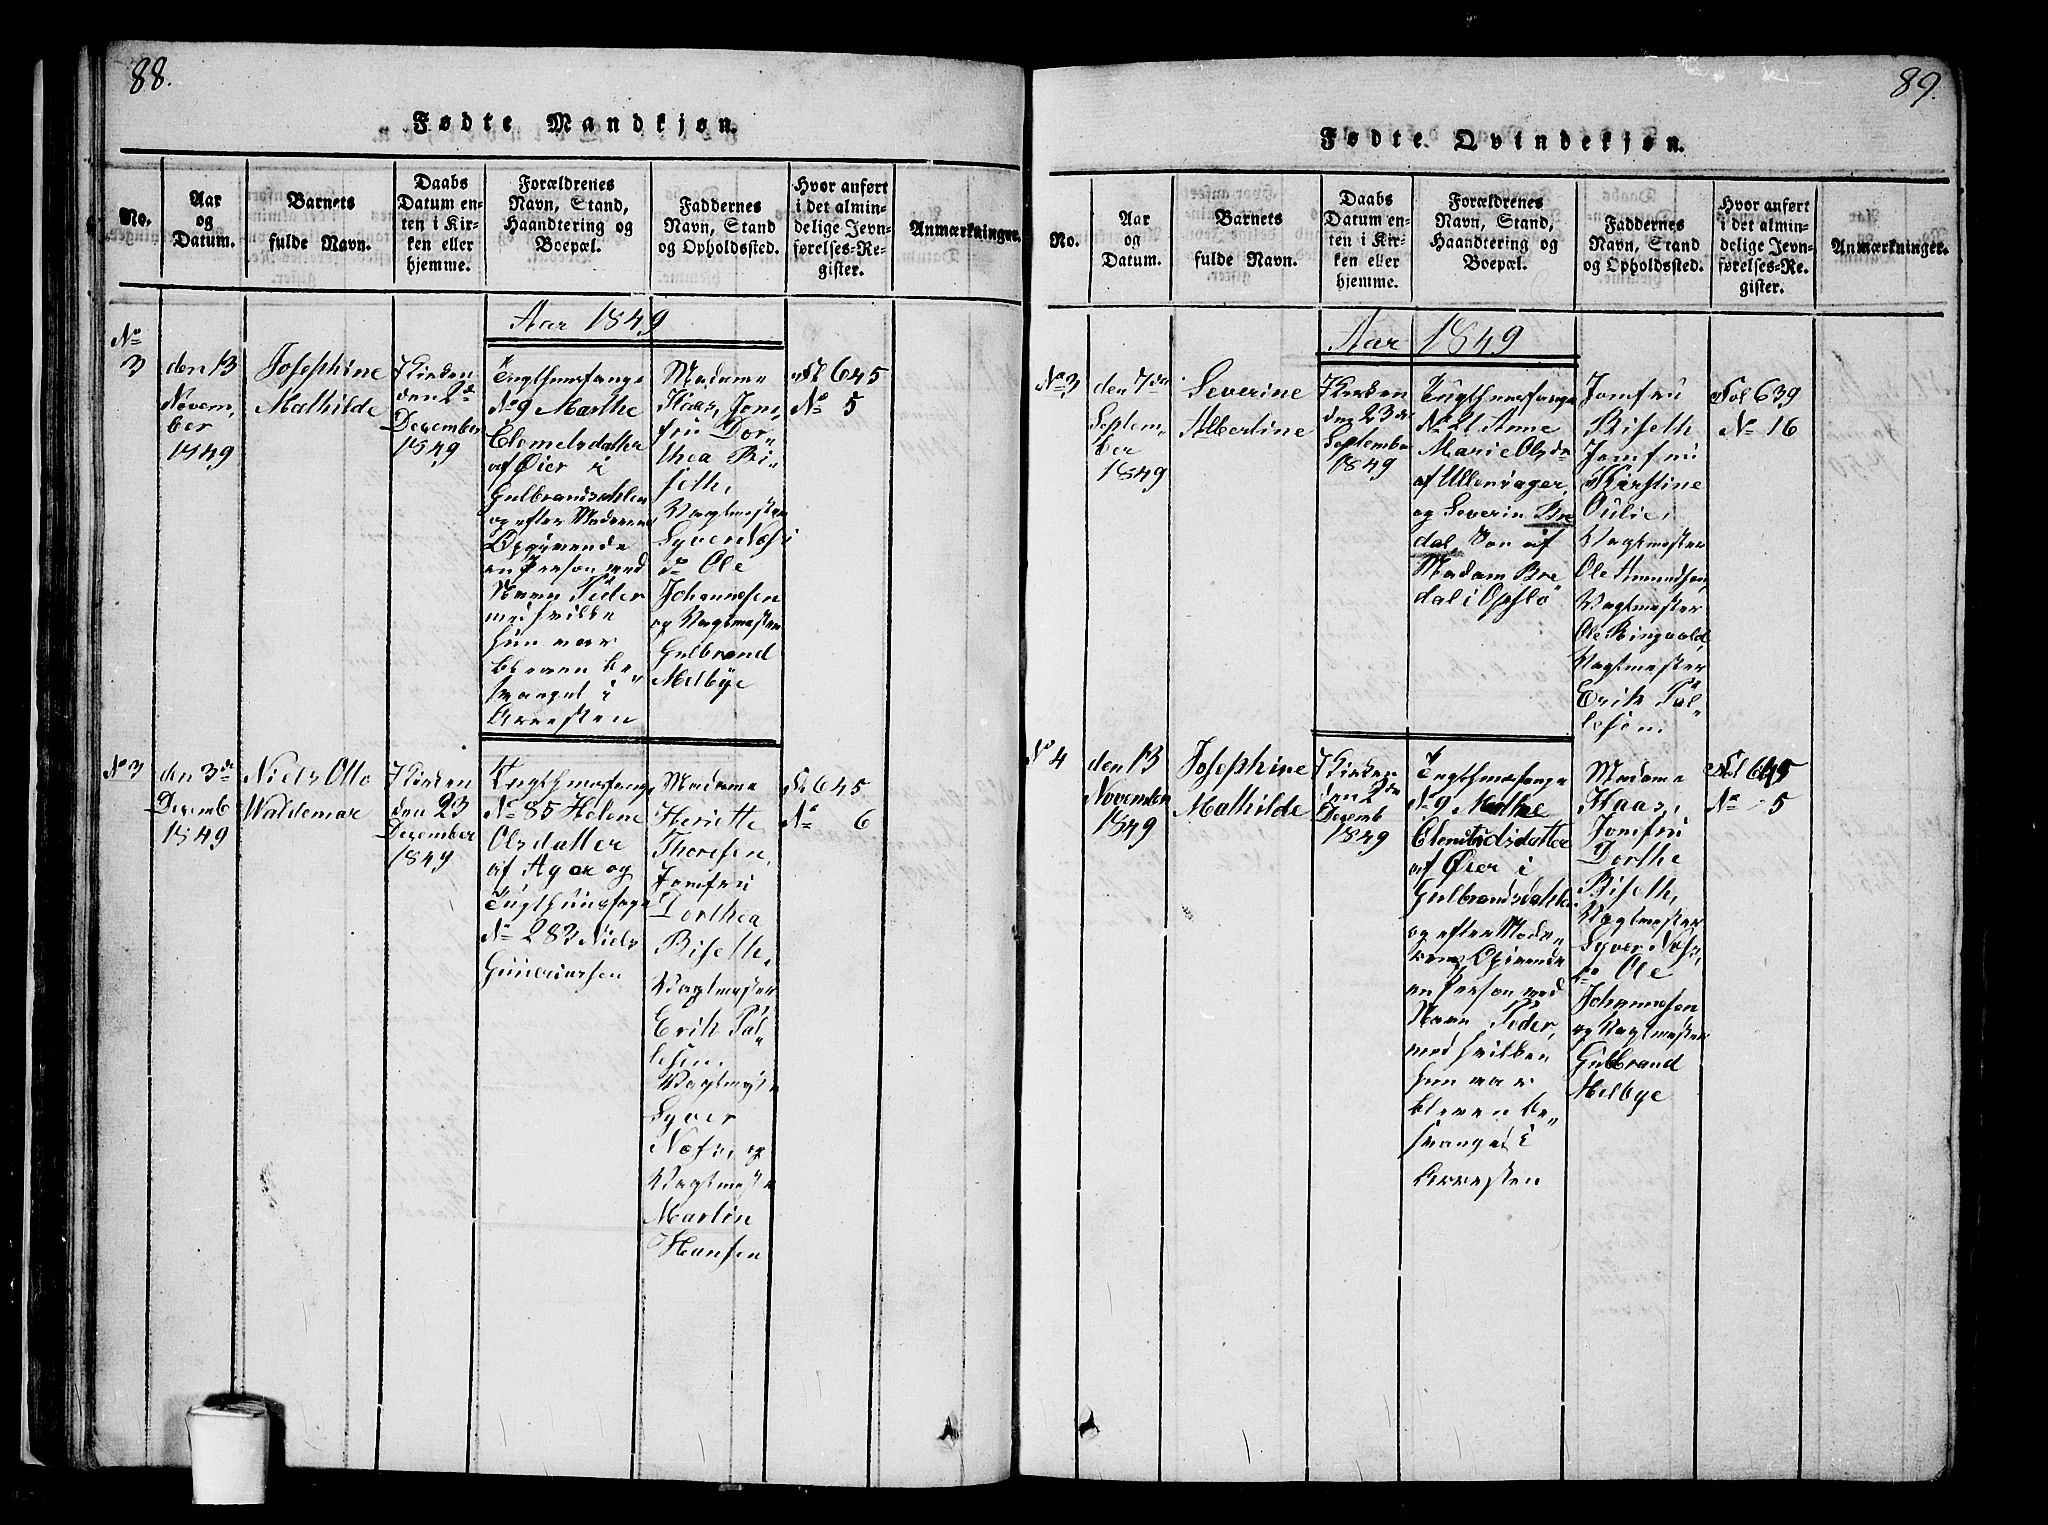 88.
Fødte Mandkjøn.
No.
Aar
og
Datum.
Barnets
fulde Navn.
Daabs
Datum en-
ten i Kir-
ken eller
hjemme.
Forældrenes
Navn, Stand,
Haandtering og
Boepæl.
Faddernes
Navn, Stand
og Opholdssted.
Hvor anført
i det almin-
delige Jevn-
førelses-Re-
gister.
Anmærkninger.
Aar 1849
No
3
den 13
Novem,
ber
1849
Josephine
Mathilde
I Kirken
den 2de
Dezember
1849
Tugthusfange
No 9 Marthe
Clemetsdatter
af Øier i
Gulbrandsdahlen
og efter Moderens
Opgivende
en Person med
Navn Peder
med hvilken
hun var
bleven be„
svangret i
Arresten
Madame
Haas, Jom,
fru Dor„
thea Ri„
seth,
Vagtmester
Syver Næss
do Ole
Johannesen
og Vagtmester
Gulbrand
Melbye
Fol 645
No 5
No 3
den 3de
Dezemb
1849
Niels Otto
Waldemar
I Kirken
den 23
Dezember
1849
Tugthusfange
No 85 Helene
Olsdatter
af Ager og
Tugthusfange
No 283 Niels
Gunnarsen
Madame
Heriette
Thoresen,
Jomfru
Dorthea
Riseth,
Vagtmester
Erik Pal„
lesen
Vagtmester
Syver
Næss, og
Vagtmester
Martin
Hansen
Fol 645
No 6
89.
Fødte Qvindekjøn.
No.
Aar
og
Datum.
Barnets
fulde Navn.
Daabs
Datum en-
ten i Kir-
ken eller
hjemme.
Forældrenes
Navn, Stand,
Haandtering og
Boepæl.
Faddernes
Navn, Stand
og Opholdssted.
Hvor anført
i det almin-
delige Jevn-
førelses-Re-
gister.
Anmærkninger.
Aar 1849
No 3
den 7de
Septem,
ber
1849
Severine
Albertine
I Kirken
den 23de
September
1849
Tugthusfange
No 21 Anne
Marie Olsda
af Ullensager,
og Severin Bre
dal, Søn af
Madam Bre
dal i Opslo
Jomfru
Riseth
Jomfru
Kirstine
Oulie,
Vagtmester
Ole Amundsen,
Vagtmester
Ole Ringvold,
Vagtmester
Erik Pal„
lesen.
Fol 639
No 16
No 4
den 13
November
1849
Josephine
Mathilde
I Kirken
den 2den
Dezemb
1849
Tugthusfange
No 9 Marthe
Clemetsdatter
af Øier i
Gulbrandsdahlen
og efter Mode„
rens Opgivende
en Person med
Navn Peder,
med hvilken
hun var
bleven be„
svangret i
Arresten
Madame
Haas,
Jomfru
Dorthe
Riseth,
Vagtmester
Syver Næss,
do Ole
Johannesen
og Vagtmester
Gulbrand
Melbye
Fol 645
No 5